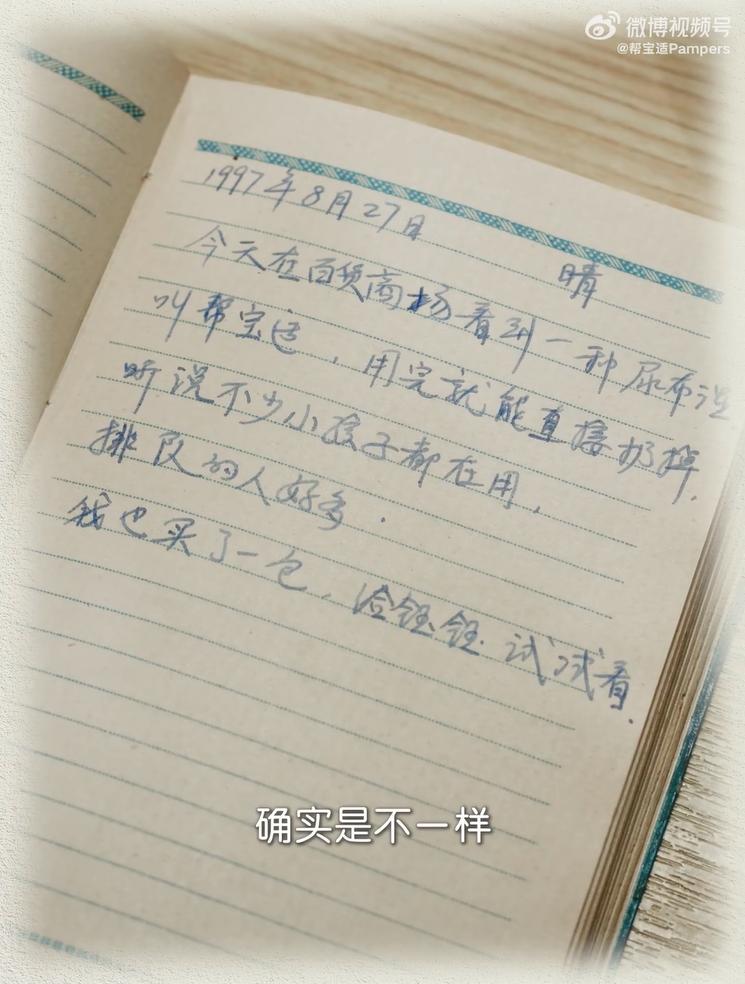 微博视频号
@帮宝适Pampers
1997年8月27日
晴
今天在百货商场看到一种尿布说
叫帮宝适，用完就能直接扔掉.
听说不少小孩子都在用，
排队的人好多.
我也买了一包，给钰钰试试看.
确实是不一样